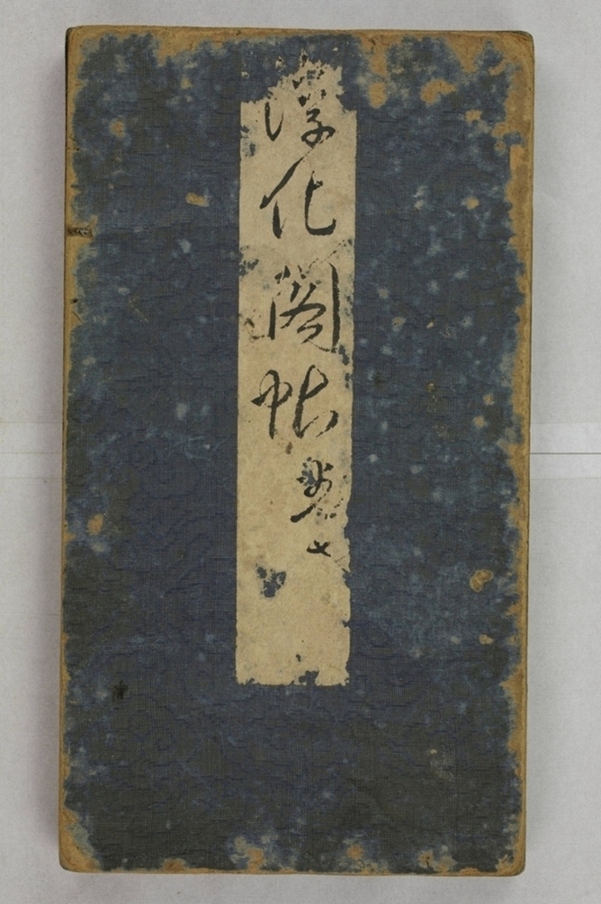 淳化閣帖 卷七